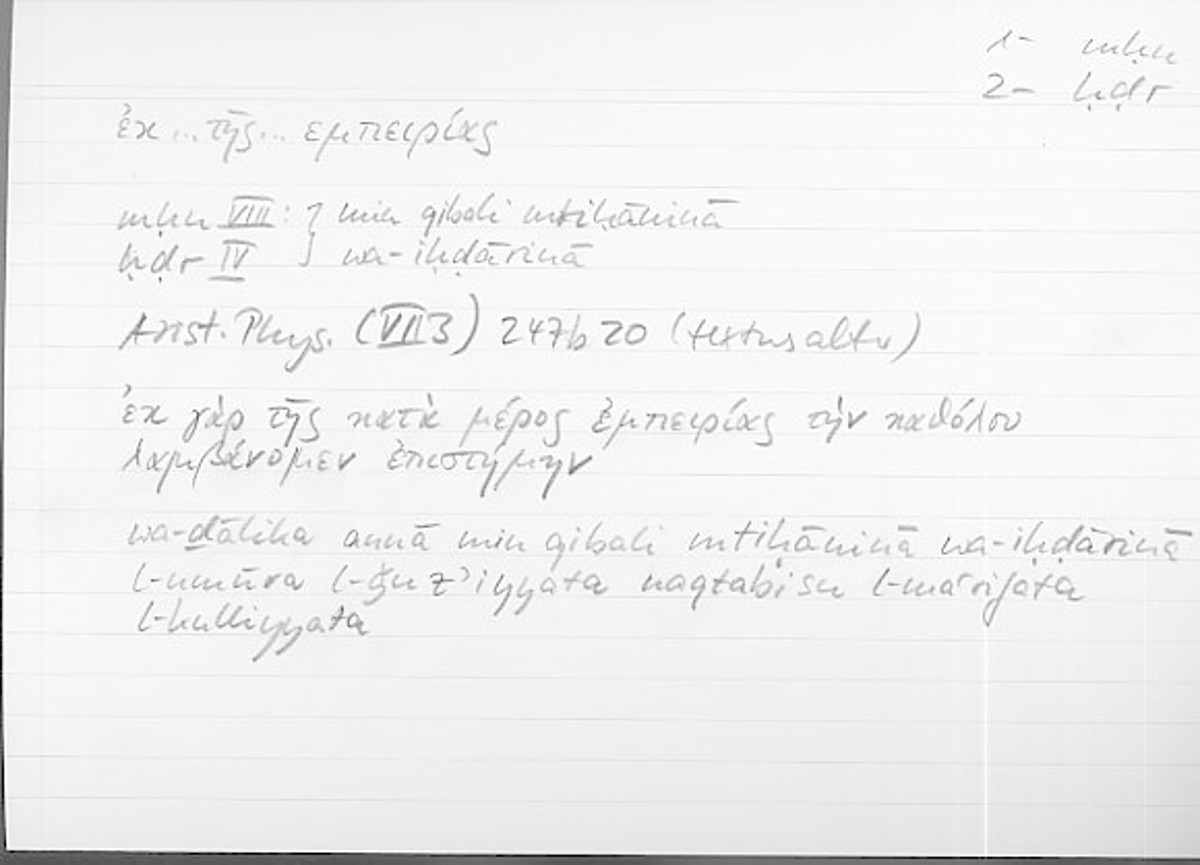 1- mḥn
2- ḥḍr
ἐκ ... τῆς ... εμπειρίας
mḥn VIII : } min qibali mtiḥāninā
ḥḍr IV } wa-iḥḍārinā
Arist. Phys. (VII 3) 247b20 (textus alter)
ἐκ γὰρ τῆς κατὰ μέρος ἐμπειρίας τὴν καθόλου
λαμβάνομεν ἐπιστήμην
wa-ḏālika annā min qibali mtiḥāninā wa-iḥḍārinā
l-umūra l-ǧuzʾiyyata naqtabisu l-maʿrifata
l-kulliyyata